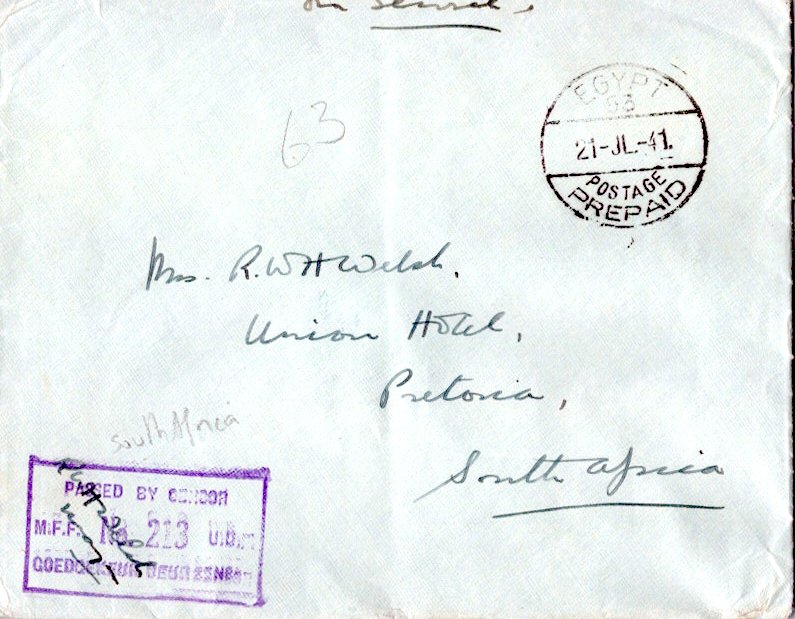 on Service.
EGYPT
93
21-JL.-41.
POSTAGE
PREPAID
63
Mrs. R.W H Welsh.
Union Hotel,
Pretoria,
South Africa
South Africa
PASSED BY CENSOR
M.F.F. No. 213 U.D.F.
GOEDGEKEUR DEUR SENSOR